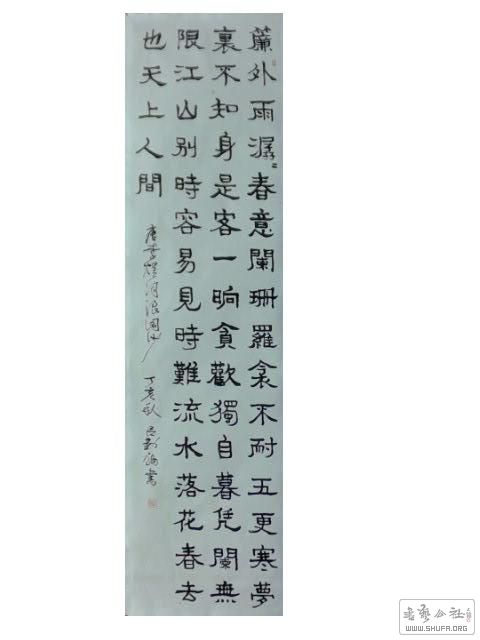 簾外雨潺〻春意闌珊羅衾不耐五更寒夢
裏不知身是客一晌貪歡獨自暮凭闌無
限江山別時容易見時難流水落花春去
也天上人間
唐李煜詞浪淘沙 丁亥秋 書
书艺公社
WWW.SHUFA.ORG